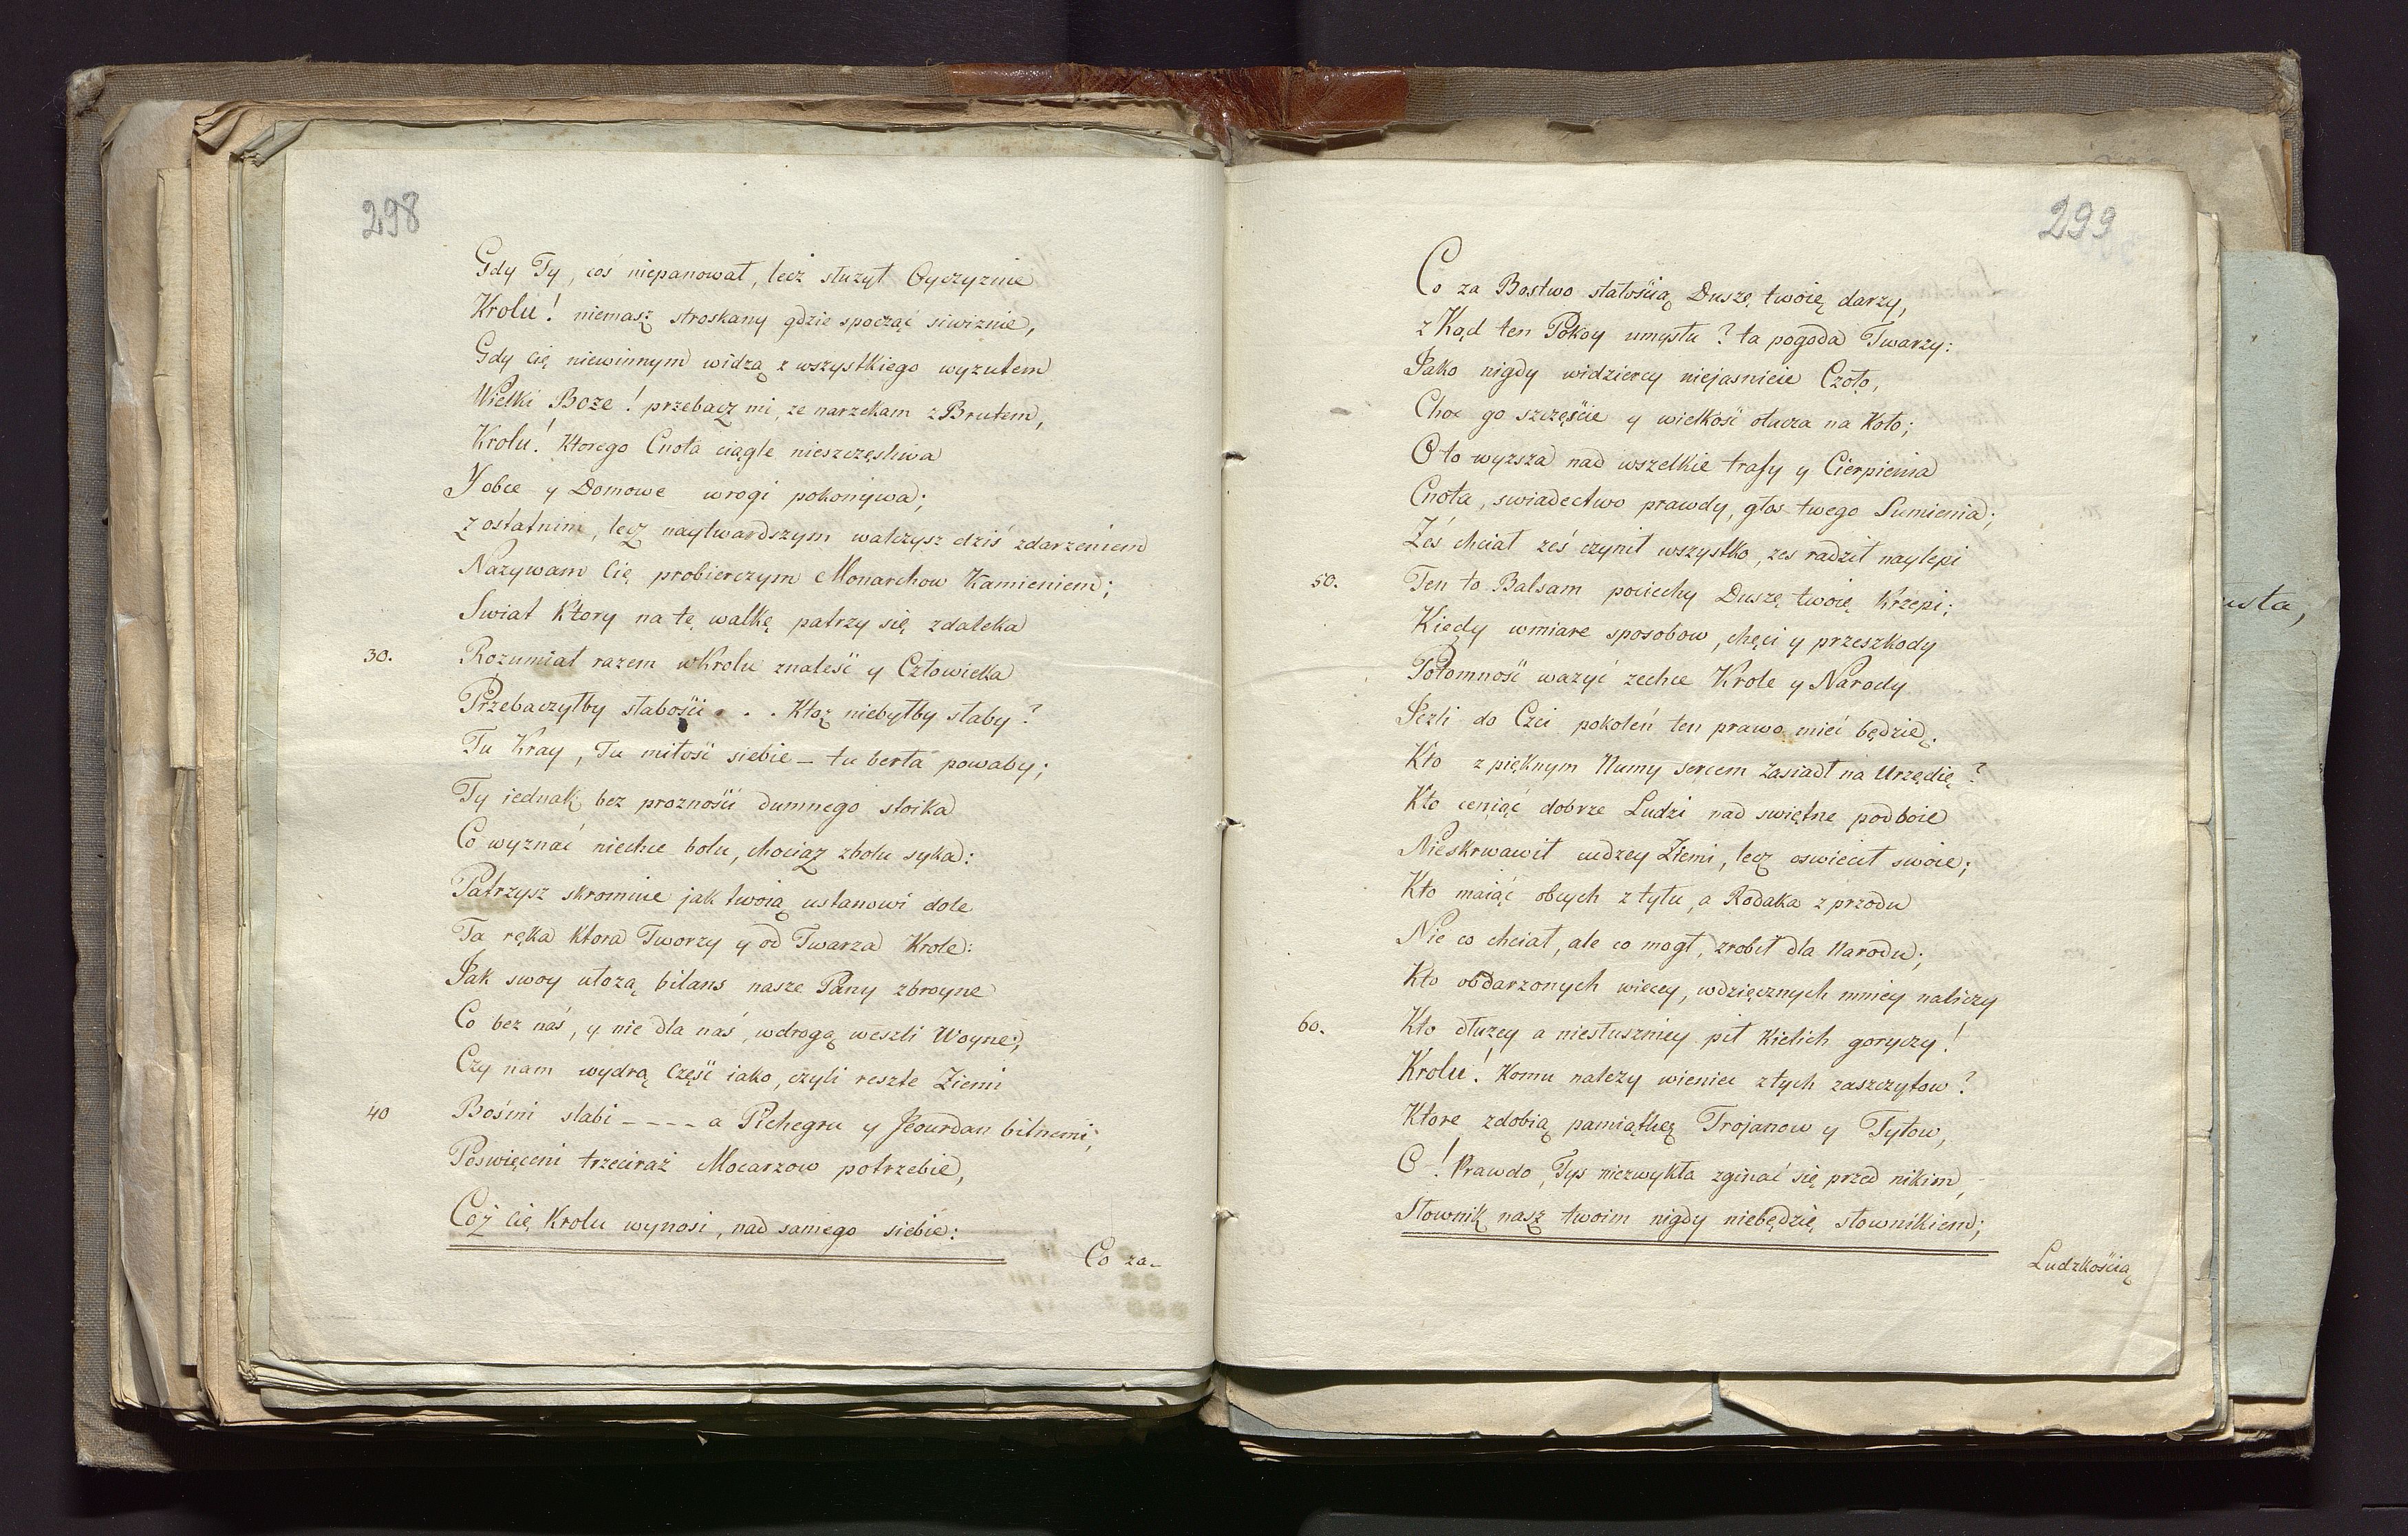 298
Gdy Ty, coś niepanował, lecz służył Oyczyznie
Krolu! niemasz stroskany gdzie spocząć siwiznie,
Gdy Cię niewinnym widzą z wszystkiego wyzutem
Wielki Boze! przebacz mi, ze narzekam z Brutem,
Krolu! Ktorego Cnota ciągle nieszczęsliwa
Y obce y Domowe wrogi pokonywa;
z ostatnim, lecz naytwardszym walczysz dziś zdarzeniem
Nazywam Cię probierczym Monarchow Kamieniem;
Swiat Ktory na tę walkę patrzy się zdaleka
30. Rozumiał razem w Krolu znaleść y Człowieka
Przebaczyłby słabości . . . Ktoz niebyłby słaby?
Tu Kray, Tu miłość siebie – tu berła powaby;
Ty iednak bez prozności dumnego stoika
Co wyznać niechce bolu, chociaz zbolu syka:
Patrzysz skromnie jak twoią ustanowi dole
Ta ręka Ktora Tworzy y od Twarza Krole:
Jak swoy ułozą bilans nasze Pany zbroyne
Co bez naś, y nie dla naś, wdrogą weszli Woynę;
Czy nam wydrą Część iako, czyli reszte Ziemi
40 Bośmi słabi ---- a Pichegru y Jeourdan bitnemi;
Poswięceni trzeciraź Mocarzow potrzebie,
Coż Cię Krolu wynosi, nad samego siebie:
Co za-
299
Co za Bostwo stałością Duszę twoię darzy,
z Kąd ten Pokoy umysłu? ta pogoda Twarzy:
Jako nigdy widziercy niejasnieie Czoło,
Choc go szczęście y wielkość otacza na Koło;
Oto wyzsza nad wszelkie trafy y Cierpienia
Cnota, swiadectwo prawdy, głos twego Sumienia;
Żeś chciał ześ czynił wszystko, zes radził naylepi
50. Ten to Balsam pociechy Duszę twoię Krzepi;
Kiedy wmiare sposobow, chęci y przeszkody
Potomność wazyć zechce Krole y Narody
Jezli do Czci pokoleń ten prawo mieć będzie.
Kto z pięknym Numy sercem Zasiadł na Urzędię?
Kto ceniąć dobrze Ludzi nad swiętne podboie
Nieskrwawił cudzey Ziemi, lecz oswiecił swoie;
Kto maiąć obcych z tyłu, a Rodaka z przodu
Nie co chciał, ale co mogł, zrobił dla Narodu;
Kto obdarzonych więcey, wdzięcznych mniey naliczy
60. Kto dłuzey a niesłuszniey pił Kielich goryczy!
Krolu! Komu nalezy wieniec ztych zaszczytow?
Ktore zdobią pamiątkę Trojanow y Tytow,
O! Prawdo, Tys niezwykła zginać się przed nikim,
Słownik nasz twoim nigdy niebędzię słownikiem;
Ludzkością
usta,